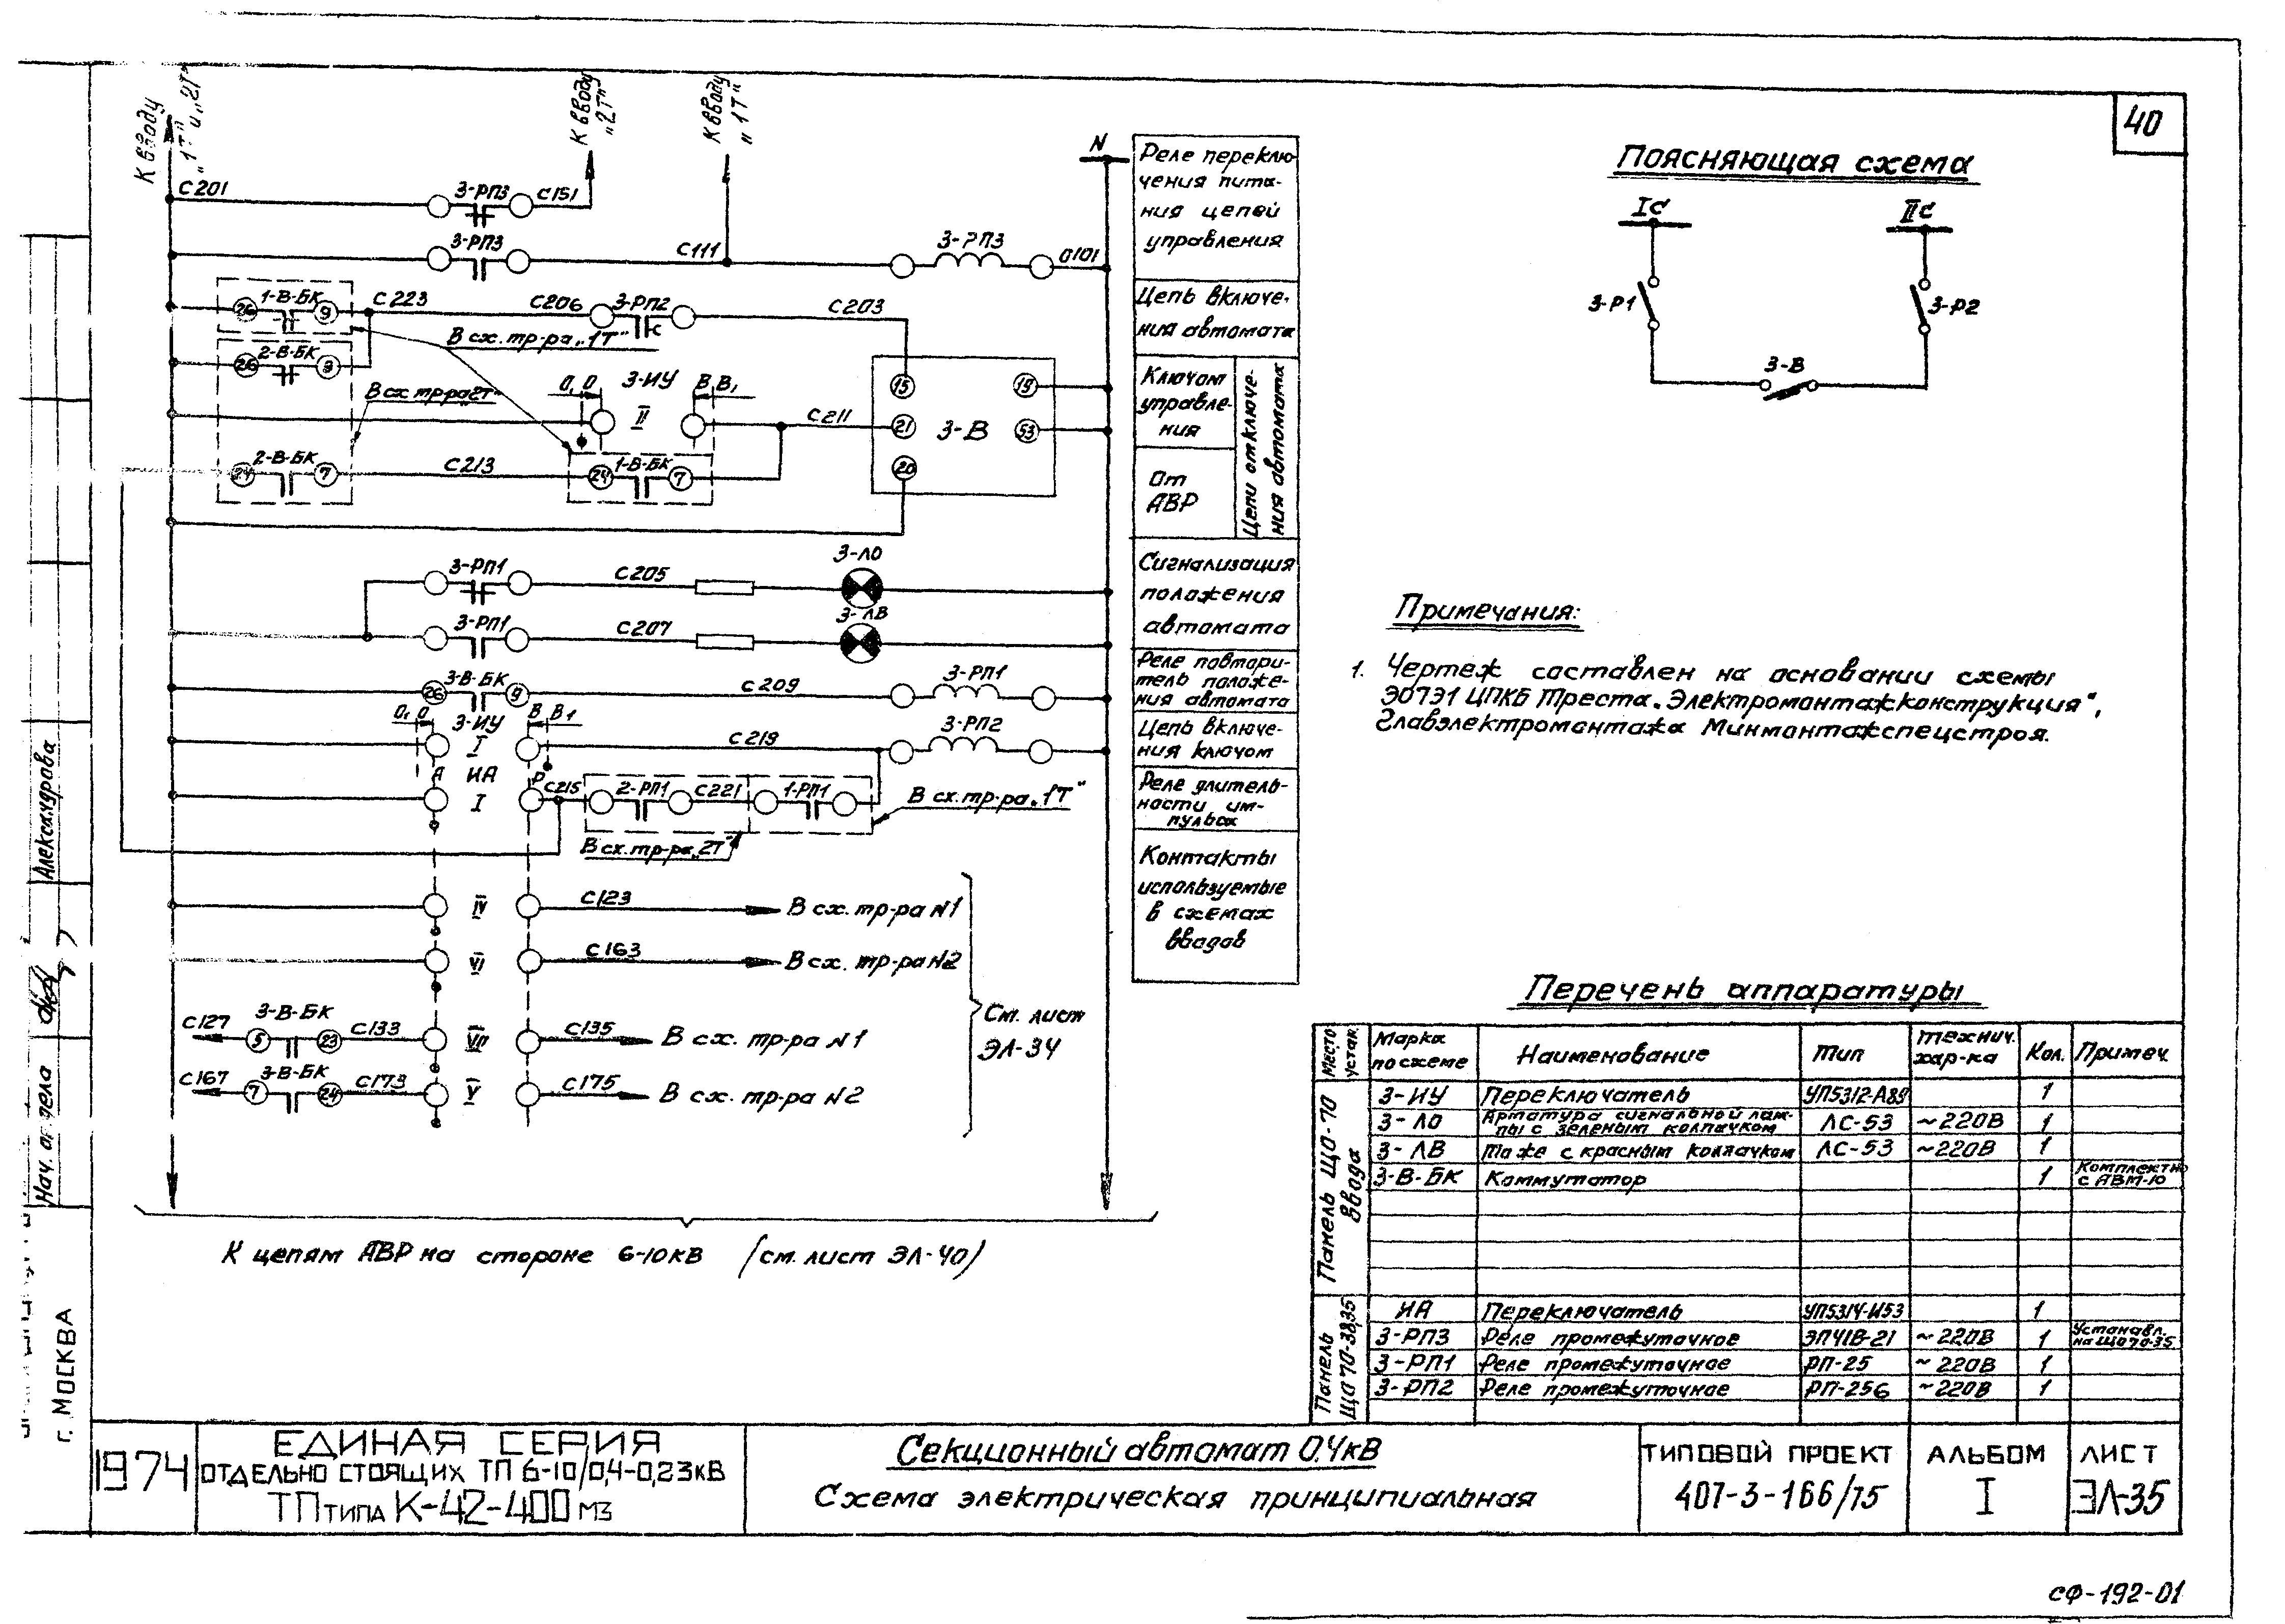 40
К вводу
„1Т" и „2Т"
К вводу
„2Т"
К вводу
„1Т"
N
С201
3-РП3
С151
3-РП3
С111
3-РП3
0101
26
1-В-БК
9
С223
С206
3-РП2
С203
В сх. тр-ра „1Т"
26
2-В-БК
9
В сх. тр-ра „2Т"
0, 0
3-ИУ
В В1
II
С211
15
19
21
3-В
53
20
24
2-В-БК
7
С213
24
1-В-БК
7
3-РП1
С205
3-ЛО
3-РП1
С207
3-ЛВ
26
3-В-БК
9
С209
3-РП1
0, 0
3-ИУ
В В1
I
С219
3-РП2
А
ИА
Р
I
С215
2-РП1
С221
1-РП1
В сх. тр-ра „1Т"
В сх. тр-ра „2Т"
IV
С123
В сх. тр-ра N1
VI
С163
В сх. тр-ра N2
С127
3-В-БК
5
23
С133
VII
С135
В сх. тр-ра N1
С167
3-В-БК
7
24
С173
V
С175
В сх. тр-ра N2
См. лист
ЭЛ-34
К цепям АВР на стороне 6-10кВ (см. лист ЭЛ-40)
Реле переклю-
чения пита-
ния цепей
управления
Цепь включе-
ния автомата
Ключом
управле-
ния
От
АВР
Цепи отключе-
ния автомата
Сигнализация
положения
автомата
Реле повтори-
тель положе-
ния автомата
Цепь включе-
ния ключом
Реле длитель-
ности им-
пульса
Контакты
используемые
в схемах
вводов
Поясняющая схема
Iс
IIс
3-Р1
3-Р2
3-В
Примечания:
1. Чертеж составлен на основании схемы
Э0731 ЦПКБ Треста „Электромонтажконструкция",
Главэлектромонтажа Минмонтажспецстроя.
Перечень аппаратуры
Место устан.
Марка по схеме
Наименование
Тип
Технич. хар-ка
Кол.
Примеч.
Панель ЩО-70 ввода
3-ИУ Переключатель УП5312-А89 1
3-ЛО Арматура сигнальной лам-
пы с зеленым колпачком ЛС-53 ~220В 1
3-ЛВ То же с красным колпачком ЛС-53 ~220В 1
3-В-БК Коммутатор 1 Комплектно
с АВМ-10
Панель ЩО70-38,35
ИА Переключатель УП5314-И53 1
3-РП3 Реле промежуточное ЭП41В-21 ~220В 1 Устанавл.
на ЩО70-35
3-РП1 Реле промежуточное РП-25 ~220В 1
3-РП2 Реле промежуточное РП-256 ~220В 1
Александрова
Нач. отдела
г. Москва
1974
ЕДИНАЯ СЕРИЯ
ОТДЕЛЬНО СТОЯЩИХ ТП 6-10/0,4-0,23кВ
ТП типа К-42-400 м3
Секционный автомат 0,4кВ
Схема электрическая принципиальная
ТИПОВОЙ ПРОЕКТ
407-3-166/75
АЛЬБОМ
I
ЛИСТ
ЭЛ-35
СФ-192-01